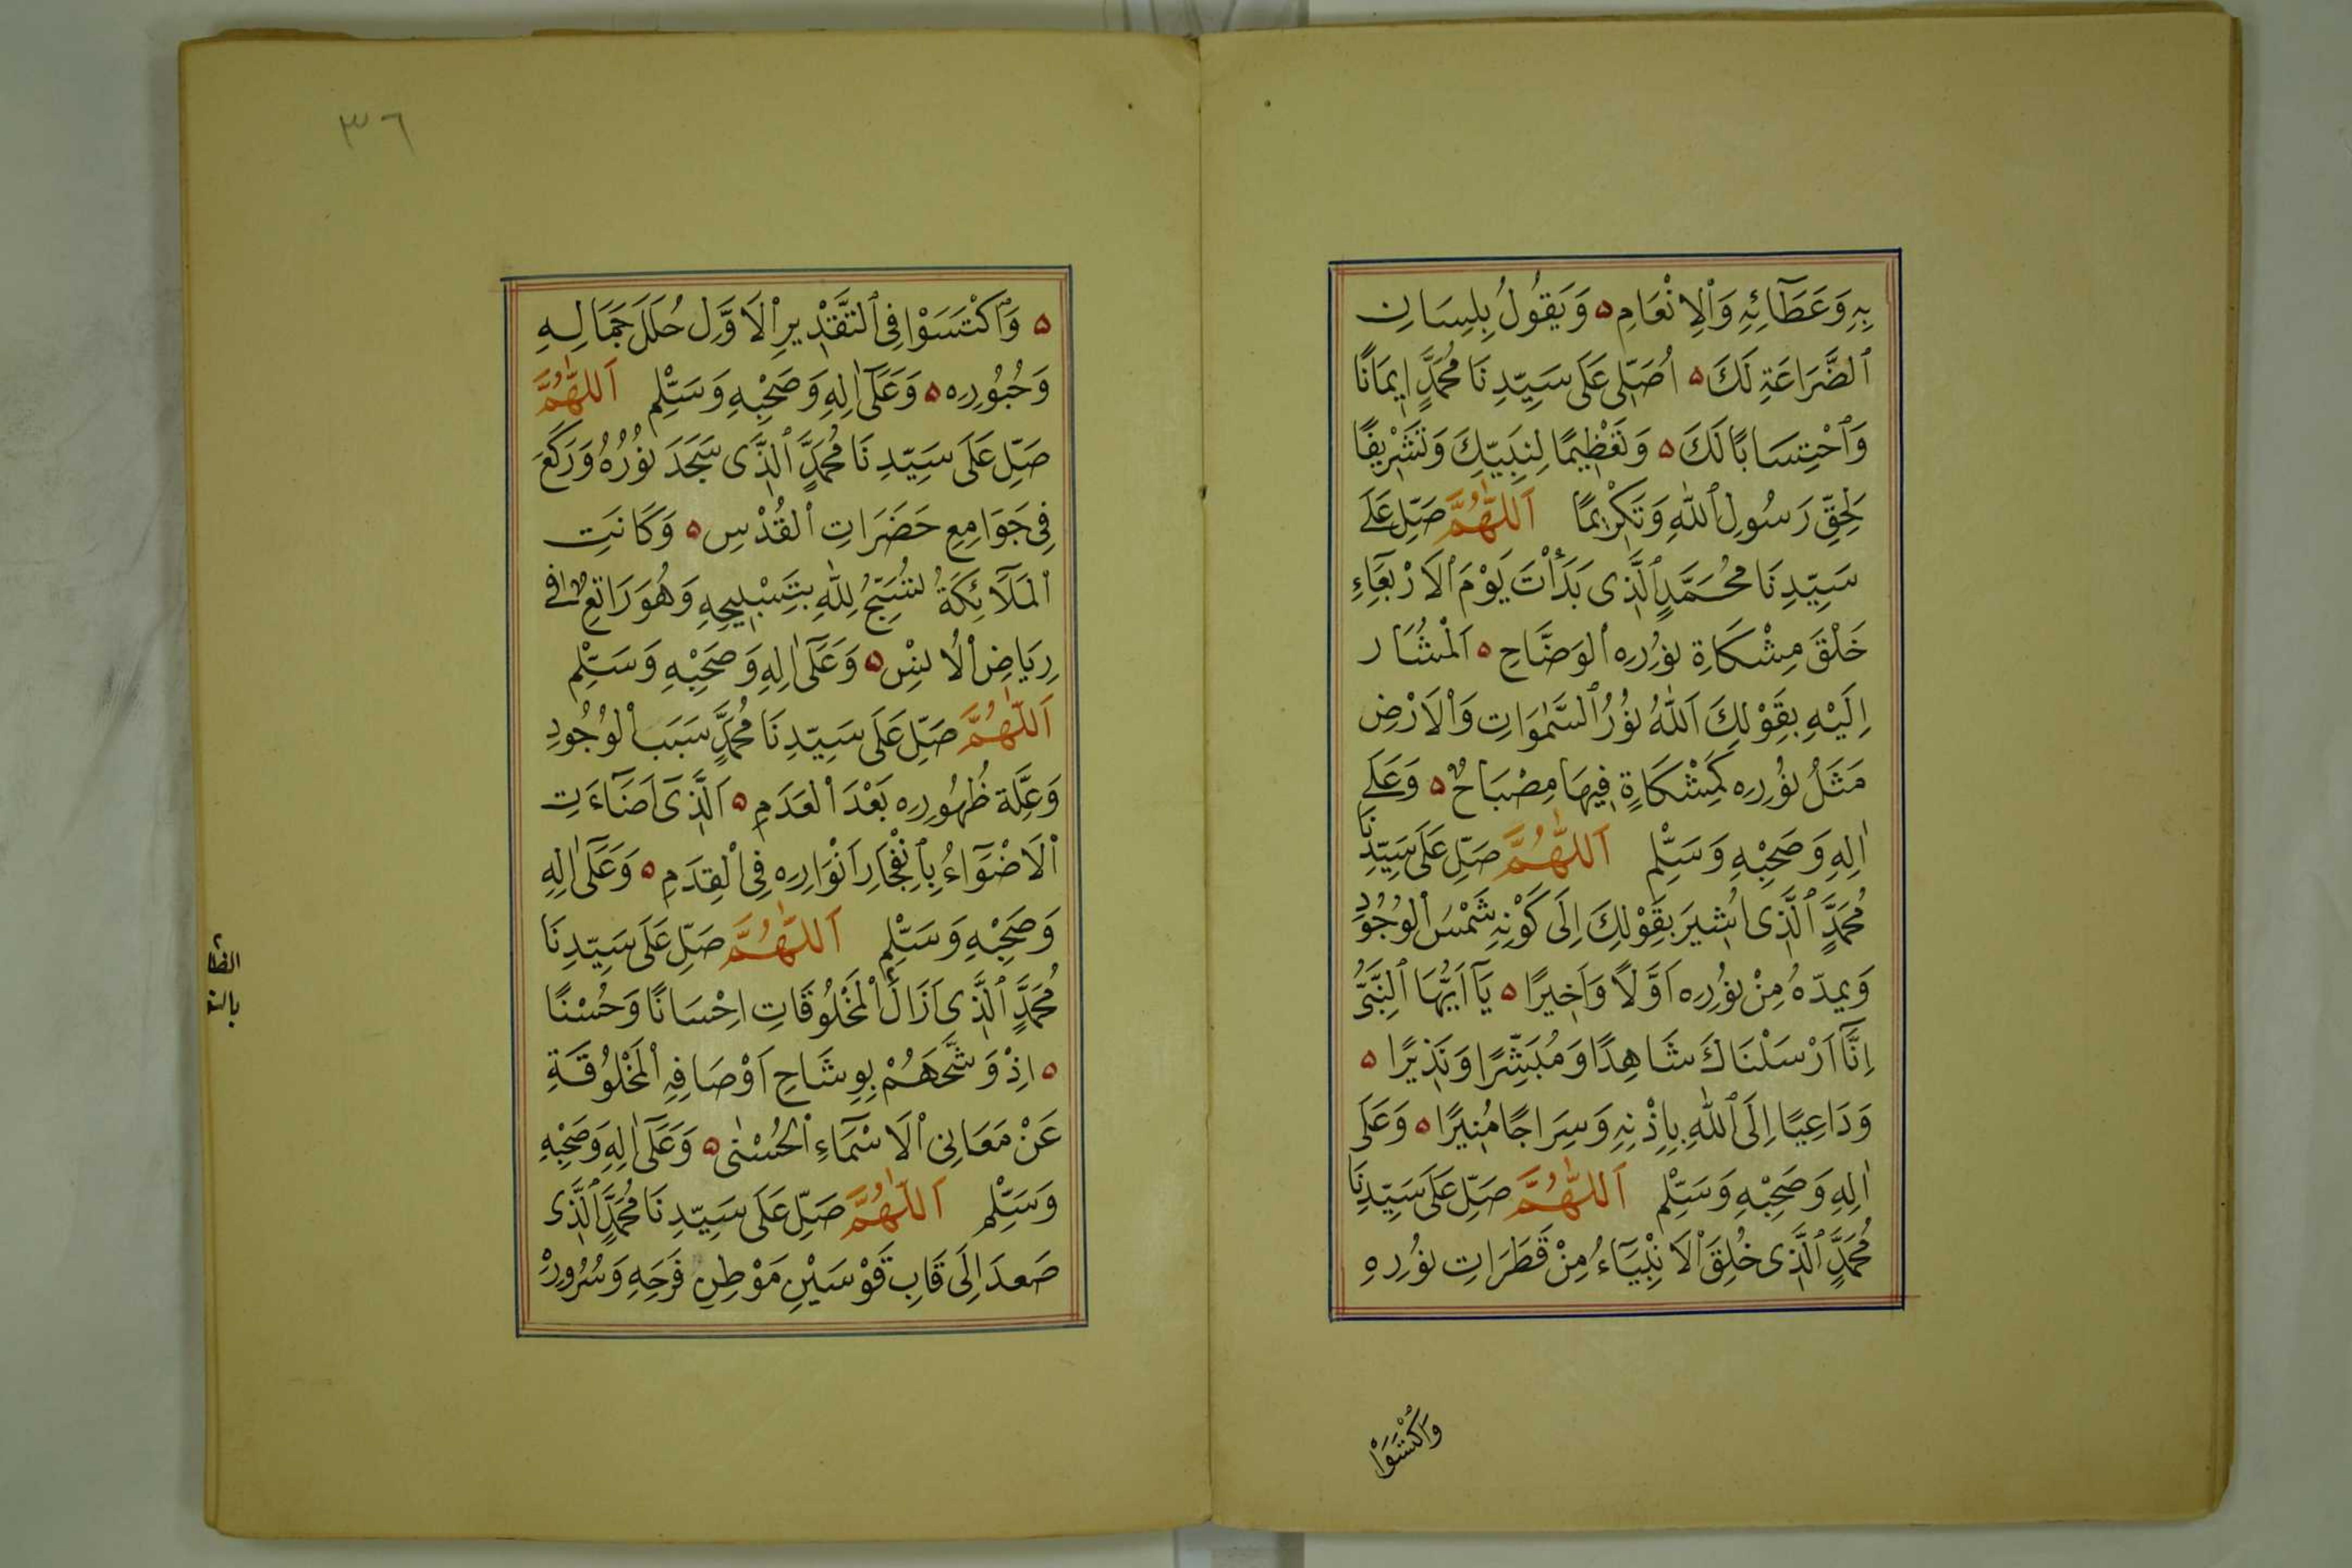 بِهِ وَعَطَآئِهِ وَٱلْاِنْعَامِ ۵ وَيَقُولُ بِلِسَانِ
ٱلضَّرَاعَةِ لَكَ ۵ اُصَلِّى عَلَى سَيِّدِنَا مُحَمَّدٍ اِيمَانًا
وَٱحْتِسَابًا لَكَ ۵ وَتَعْظِيمًا لِنَبِيِّكَ وَتَشْرِيفًا
لِحَقِّ رَسُولِ ٱللّٰهِ وَتَكْرِيمًا اَللّٰهُمَّ صَلِّ عَلَى
سَيِّدِنَا مُحَمَّدٍ ٱلَّذِى بَدَأْتَ يَوْمَ ٱلْاَرْبَعَاءِ
خَلْقَ مِشْكَاةِ نُورِهِ ٱلْوَضَّاحِ ۵ اَلْمُشَارِ
اِلَيْهِ بِقَوْلِكَ اَللّٰهُ نُورُ ٱلسَّمٰوَاتِ وَٱلْاَرْضِ
مَثَلُ نُورِهِ كَمِشْكَاةٍ فِيهَا مِصْبَاحٌ ۵ وَعَلَى
اٰلِهِ وَصَحْبِهِ وَسَلِّمْ اَللّٰهُمَّ صَلِّ عَلَى سَيِّدِنَا
مُحَمَّدٍ ٱلَّذِى اُشِيرَ بِقَوْلِكَ اِلَى كَوْنِهِ شَمْسَ ٱلْوُجُودِ
وَيَمِدّهُ مِنْ نُورِهِ اَوَّلًا وَاَخِيرًا ۵ يَآ اَيُّهَا ٱلنَّبِىُّ
اِنَّآ اَرْسَلْنَاكَ شَاهِدًا وَمُبَشِّرًا وَنَذِيرًا ۵
وَدَاعِيًا اِلَى ٱللّٰهِ بِاِذْنِهِ وَسِرَاجًا مُنِيرًا ۵ وَعَلَى
اٰلِهِ وَصَحْبِهِ وَسَلِّمْ اَللّٰهُمَّ صَلِّ عَلَى سَيِّدِنَا
مُحَمَّدٍ ٱلَّذِى خُلِقَ ٱلْاَنْبِيَآءُ مِنْ قَطَرَاتِ نُورِهِ
وَاكْتَسَوْا
٣٦
۵ وَٱكْتَسَوْا فِى ٱلتَّقْدِيرِ ٱلْاَوَّلِ حُلَلَ جَمَالِهِ
وَحُبُورِهِ ۵ وَعَلَىٓ اٰلِهِ وَصَحْبِهِ وَسَلِّمْ اَللّٰهُمَّ
صَلِّ عَلَى سَيِّدِنَا مُحَمَّدٍ ٱلَّذِى سَجَدَ نُورُهُ وَرَكَعَ
فِى جَوَامِعِ حَضَرَاتِ ٱلْقُدْسِ ۵ وَكَانَتِ
ٱلْمَلَآئِكَةُ تُسَبِّحُ لِلّٰهِ بِتَسْبِيحِهِ وَهُوَ رَاتِعٌ فِى
رِيَاضِ ٱلْاُنْسِ ۵ وَعَلَىٓ اٰلِهِ وَصَحْبِهِ وَسَلِّمْ
اَللّٰهُمَّ صَلِّ عَلَى سَيِّدِنَا مُحَمَّدٍ سَبَبِ ٱلْوُجُودِ
وَعِلَّةِ ظُهُورِهِ بَعْدَ ٱلْعَدَمِ ۵ اَلَّذِىٓ اَضَآءَتِ
ٱلْاَضْوَآءُ بِٱنْفِجَارِ اَنْوَارِهِ فِى ٱلْقِدَمِ ۵ وَعَلَىٓ اٰلِهِ
وَصَحْبِهِ وَسَلِّمْ اَللّٰهُمَّ صَلِّ عَلَى سَيِّدِنَا
مُحَمَّدٍ ٱلَّذِى اَزَالَ ٱلْمَخْلُوقَاتِ اِحْسَانًا وَحُسْنًا
۵ اِذْ وَشَّحَهُمْ بِوِشَاحِ اَوْصَافِهِ ٱلْمَخْلُوقَةِ
عَنْ مَعَانِى ٱلْاَسْمَآءِ ٱلْحُسْنٰى ۵ وَعَلَىٓ اٰلِهِ وَصَحْبِهِ
وَسَلِّمْ اَللّٰهُمَّ صَلِّ عَلَى سَيِّدِنَا مُحَمَّدٍ ٱلَّذِى
صَعدَ اِلَى قَابِ قَوْسَيْنِ مَوْطِنِ فَرَحِهِ وَسُرُورِهِ